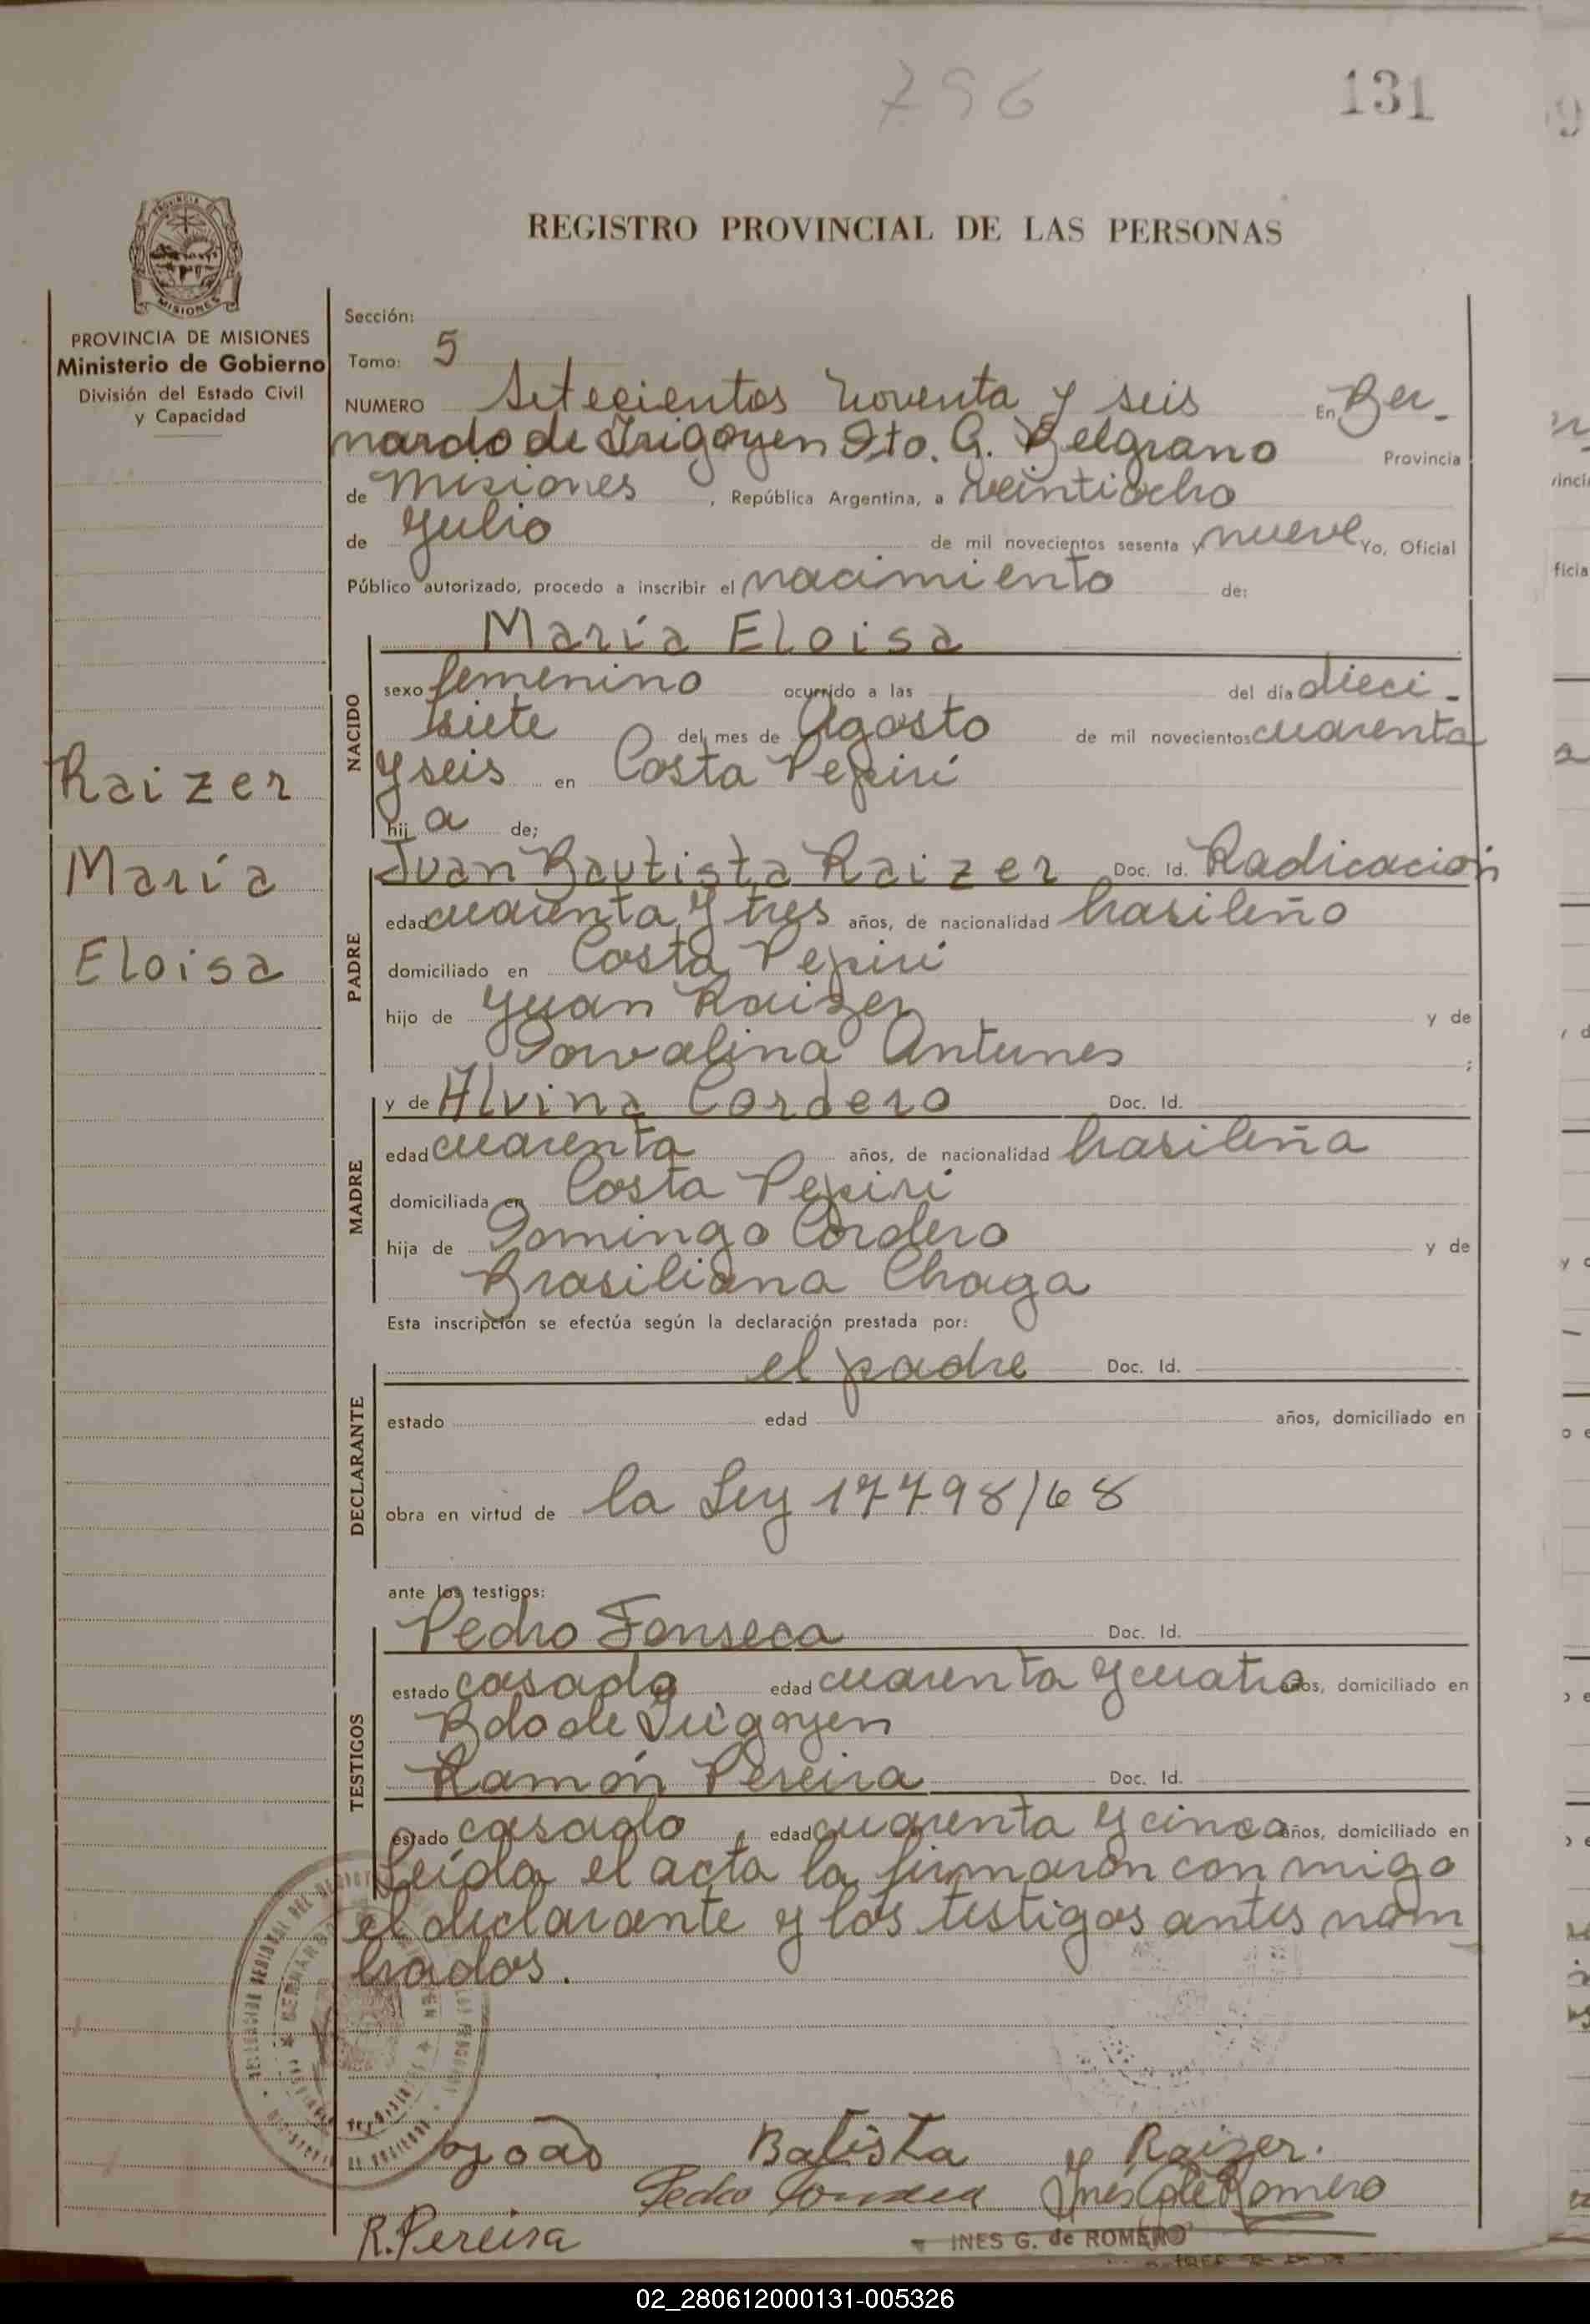 796
131
REGISTRO PROVINCIAL DE LAS PERSONAS
MISIONES
PROVINCIA DE MISIONES
Ministerio de Gobierno
División del Estado Civil
y Capacidad
Raizer
María
Eloisa
Sección:
Tomo: 5
NUMERO Setecientos noventa y seis En Ber-
nardo de Irigoyen Dto. G. Belgrano Provincia
de Misiones , República Argentina, a veintiocho
de Julio de mil novecientos sesenta y nueve Yo, Oficial
Público autorizado, procedo a inscribir el nacimiento de:
NACIDO
María Eloisa
sexo femenino ocurrido a las del día dieci-
siete del mes de Agosto de mil novecientos cuarenta
y seis en Costa Pepirí
hij a de;
PADRE
Juan Bautista Raizer Doc. Id. Radicación
edad cuarenta y tres años, de nacionalidad brasileño
domiciliado en Costa Pepirí
hijo de Juan Raizer y de
Dorvalina Antunes ;
MADRE
y de Alvina Cordero Doc. Id.
edad cuarenta años, de nacionalidad brasileña
domiciliada en Costa Pepirí
hija de Domingo Cordero y de
Brasiliana Chaga
Esta inscripción se efectúa según la declaración prestada por:
DECLARANTE
el padre Doc. Id.
estado edad años, domiciliado en
obra en virtud de la Ley 17798/68
ante los testigos:
TESTIGOS
Pedro Fonseca Doc. Id.
estado casado edad cuarenta y cuatro años, domiciliado en
Bdo de Irigoyen
Ramón Pereira Doc. Id.
estado casado, edad cuarenta y cinco años, domiciliado en
Leída el acta la firmaron con migo
el declarante y los testigos antes nom
brados.
João Batista Raizer.
Pedro Fonseca Inés G de Romero
R. Pereira
INES G. de ROMERO
02_280612000131-005326